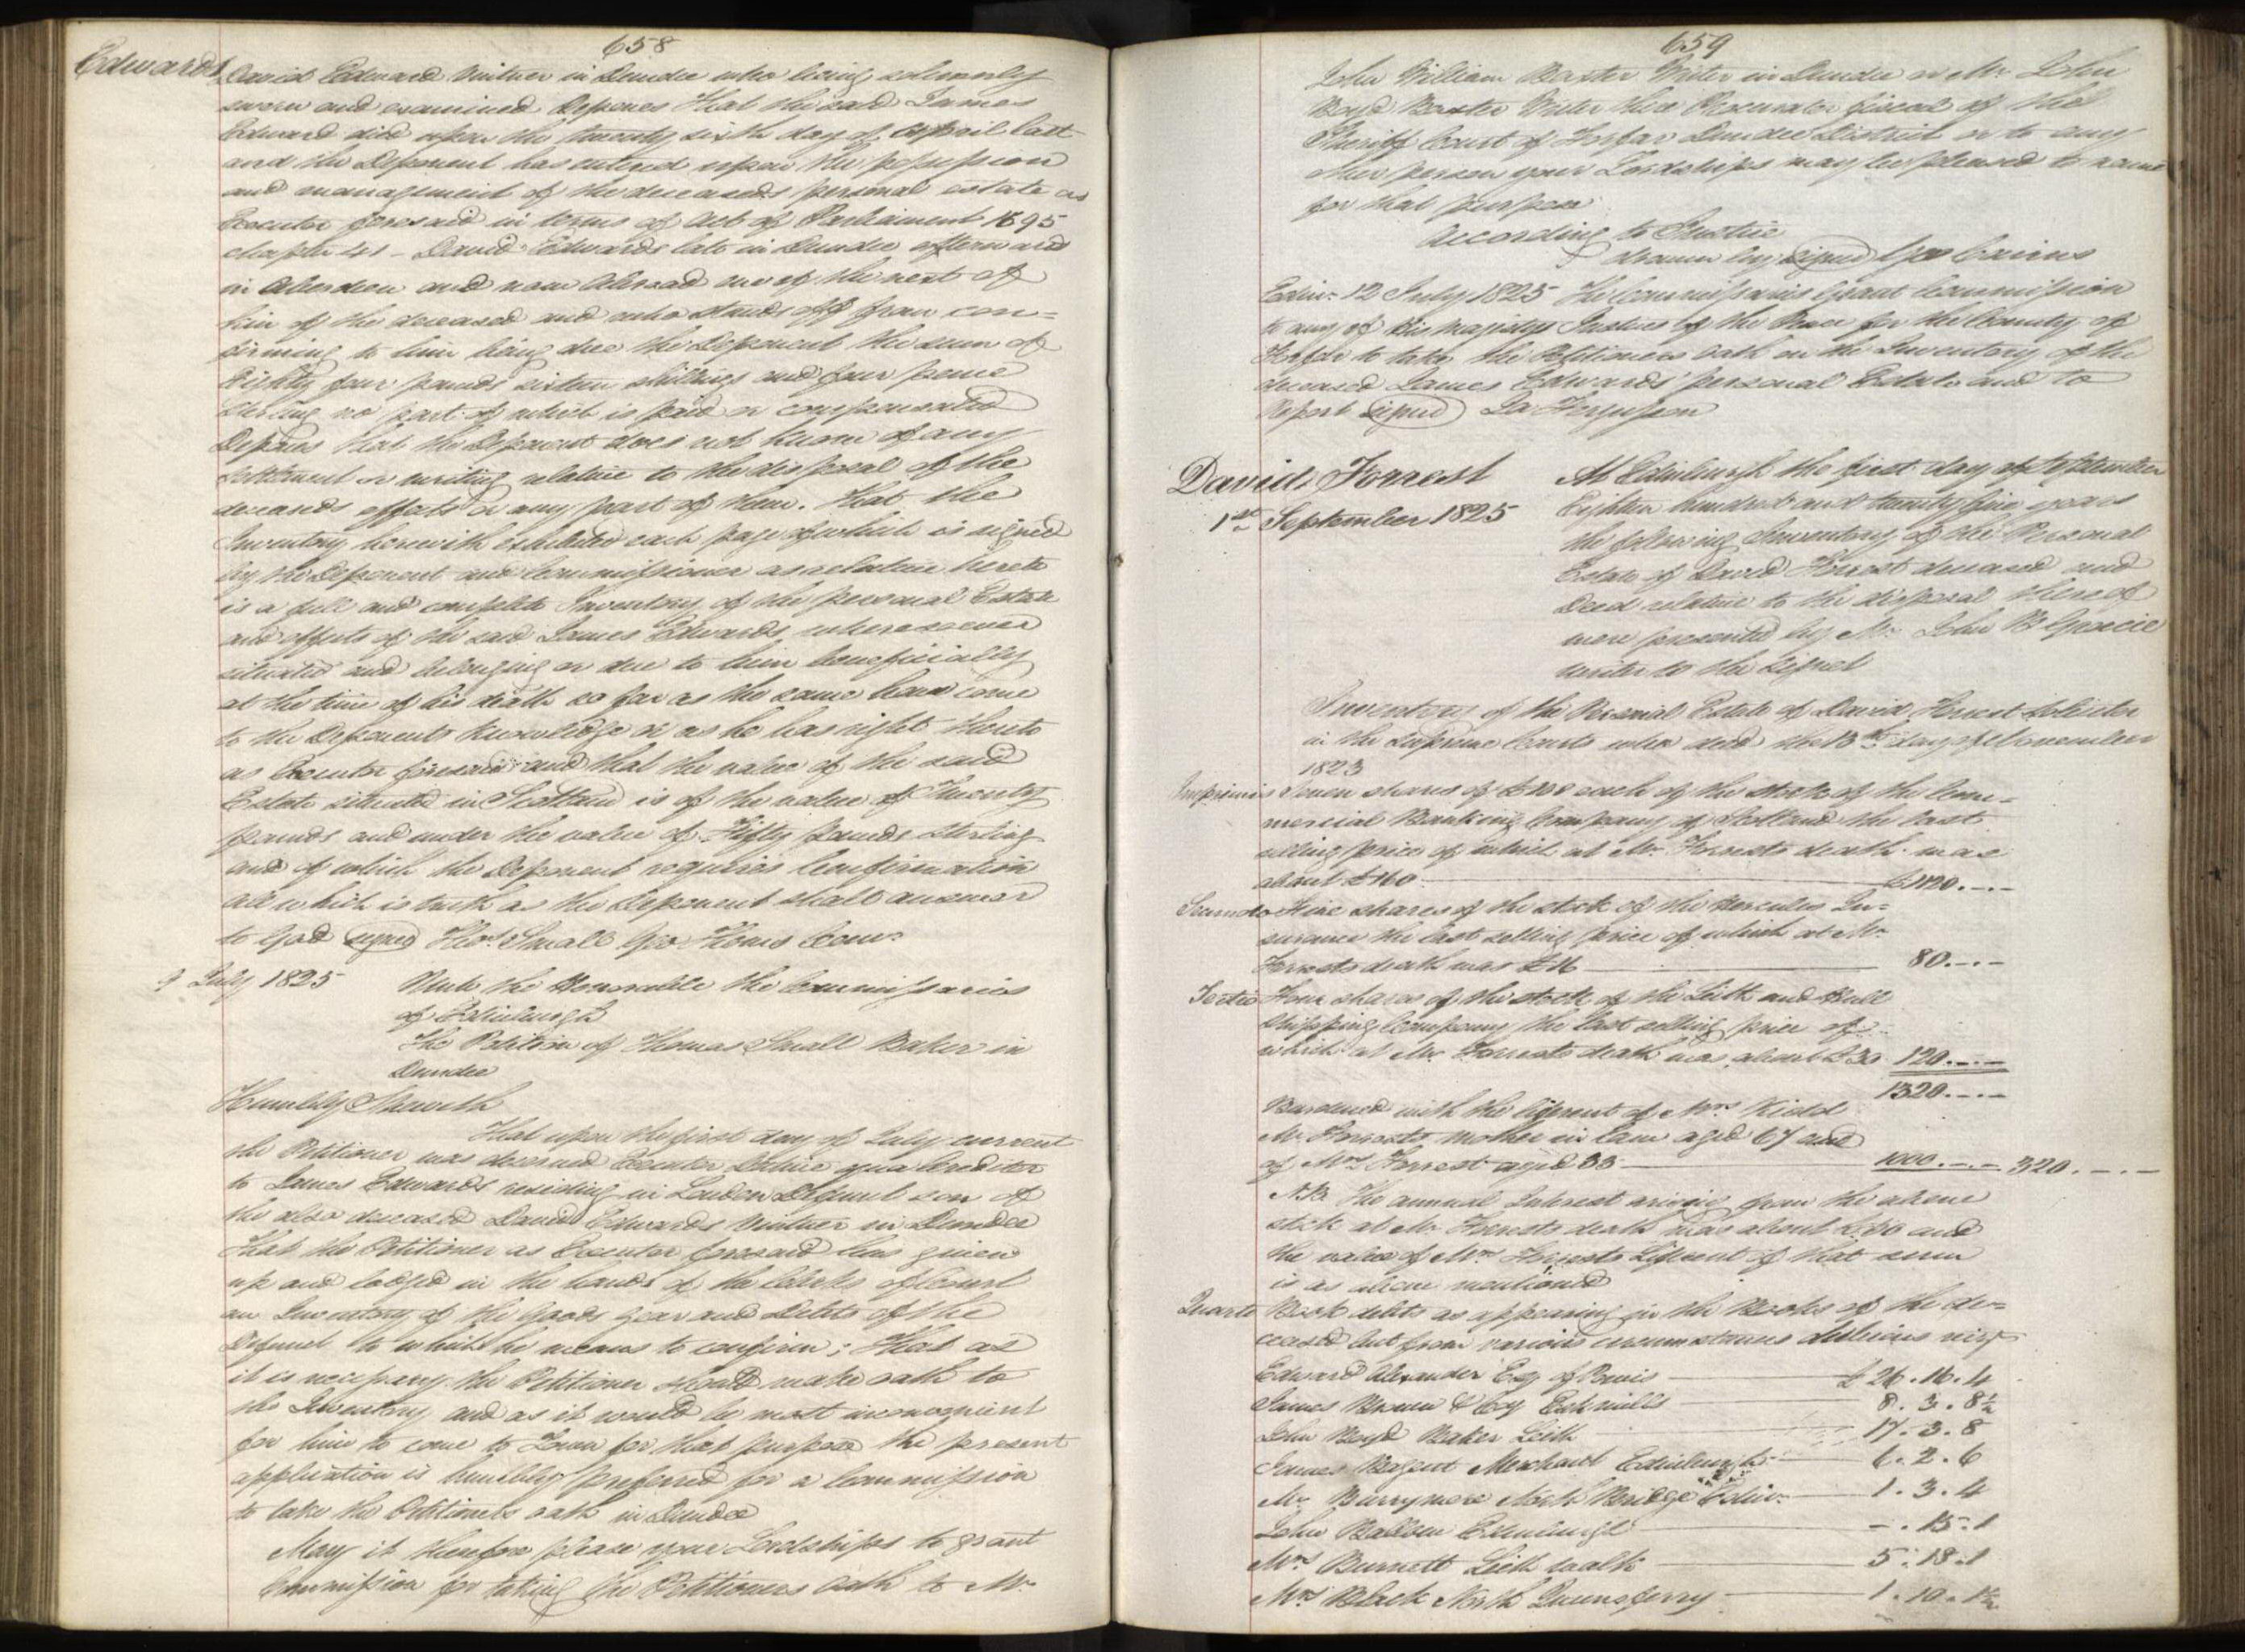 658
Edwards
David Edward Vintner in Dundee who being solemnly
sworn and examined Depones That the said James
Edward died upon the twenty sixth day of April last
and the Deponent has entered upon the possession
and management of the deceaseds personal estate as
Executor foresaid in terms of Act of Parliament 1695
chapter 41 – David Edwards late in Dundee afterwards
in Aberdeen and now Abroad one of the next of
kin of the deceased and who stands off from con=
firming to him being due the Deponent the sum of
Eighty four pounds sixteen shillings and four pence
Sterling no part of which is paid or compensated
Depones that the Deponent does not know of any
settlement or writing relative to the disposal of the
deceaseds effects or any part of them. That the
Inventory herewith exhibited each page of which is signed
by the Deponent and Commissioner as relative hereto
is a full and complete Inventory of the personal Estate
and effects of the said James Edwards wheresoever
situated and belonging or due to him beneficially
at the time of his death so far as the same have come
to the Deponents Knowledge or as he has right thereto
as Executor foresaid and that the value of the said
Estate situated in Scotland is of the value of Twenty
pounds and under the value of Fifty pounds sterling
and of which the Deponent requires Confirmation
All which is truth as the Deponent shall answer
to God signed Thos. Small Geo Thoms Comr.
July 1825
Unto the Honourable the Commissaries
of Edinburgh
The Petition of Thomas Small Baker in
Dundee
Humbly Sheweth
That upon the first day of July current
the Petitioner was decerned Executor Dative qua Creditor
to James Edwards residing in London Defunct son of
the also deceased David Edwards Vintner in Dundee
That the Petitioner as Executor foresaid has given
up and lodged in the hands of the Clerks of Court
an Inventory of the Goods gear and Debts of the
Defunct to which he means to confirm; That as
it is necessary the Petitioner should make oath to
the Inventory and as it would be most inconvenient
for him to come to Town for that purpose the present
application is humbly preferred for a Commission
to take the Petitioners oath in Dundee
May it therefore please your Lordships to grant
Commission for taking the Petitioners Oath to Mr
659
John William Baxter Writer in Dundee or Mr John
Boyd Baxter Writer there Procurator fiscal of the
Sheriff Court of Forfar Dundee District or to any
other person your Lordships may be pleased to name
for that purpose
According to Justice
drawn by signed Geo Cairns
Edinr. 12 July 1825 The Commissaries Grant Commission
to any of His Majestys Justices of the Peace for the County of
Forfar to take the Petitioners Oath on the Inventory of the
deceased James Edwards' personal Estate and to
Report signed Ja Fergusson
David Forrest
1st September 1825
At Edinburgh the first day of September
Eighteen hundred and twenty five years
the following Inventory of the Personal
Estate of David Forrest deceased and
Deed relative to the disposal thereof
were presented by Mr John B Gracie
writer to the Signet
Inventory of the Personal Estate of David Forrest Solicitor
in the Supreme Courts who died the 13th day of November
1823
Imprimis Seven shares of £100 each of the stock of the Com=
mercial Banking Company of Scotland the last
selling price of which at Mr Forrests death was
about £160 £1120.–.–
Secundo Five shares of the stock of the Hercules In=
surance the last selling price of which at Mr
Forrests death was £16 80.–.–
Tertio Four shares of the stock of the Leith and Hull
Shipping Company the last selling price of
which at Mr Forrests death was about £30 120.–.–
1320.–.–
Burdened with the liferent of Mrs Kidd
Mr Forrests mother in law aged 67 and
of Mrs Forrest aged 33 1000.–.– 320.–.–
N.B. The annual Interest arising from the above
stock at Mr Forrests death was about £60 and
the value of Mrs Forrests Liferent of that sum
is as above mentioned
Quarto Book debts as appearing in the Books of the de=
ceased but from various circumstances dubious vizt
Edward Alexander Esq of Powis £26.16.4
James Brown & Coy Eskmills 8.3.8½
John Boyd Baker Leith 17.3.8
James Merchant Edinburgh 6.2.6
Mr Barrymore North Bridge Edinr. 1.3.4
John Edinburgh –.15.1
Mrs Burnett Leith walk 5.18.1
Mrs Black North Queensferry 1.10.1½